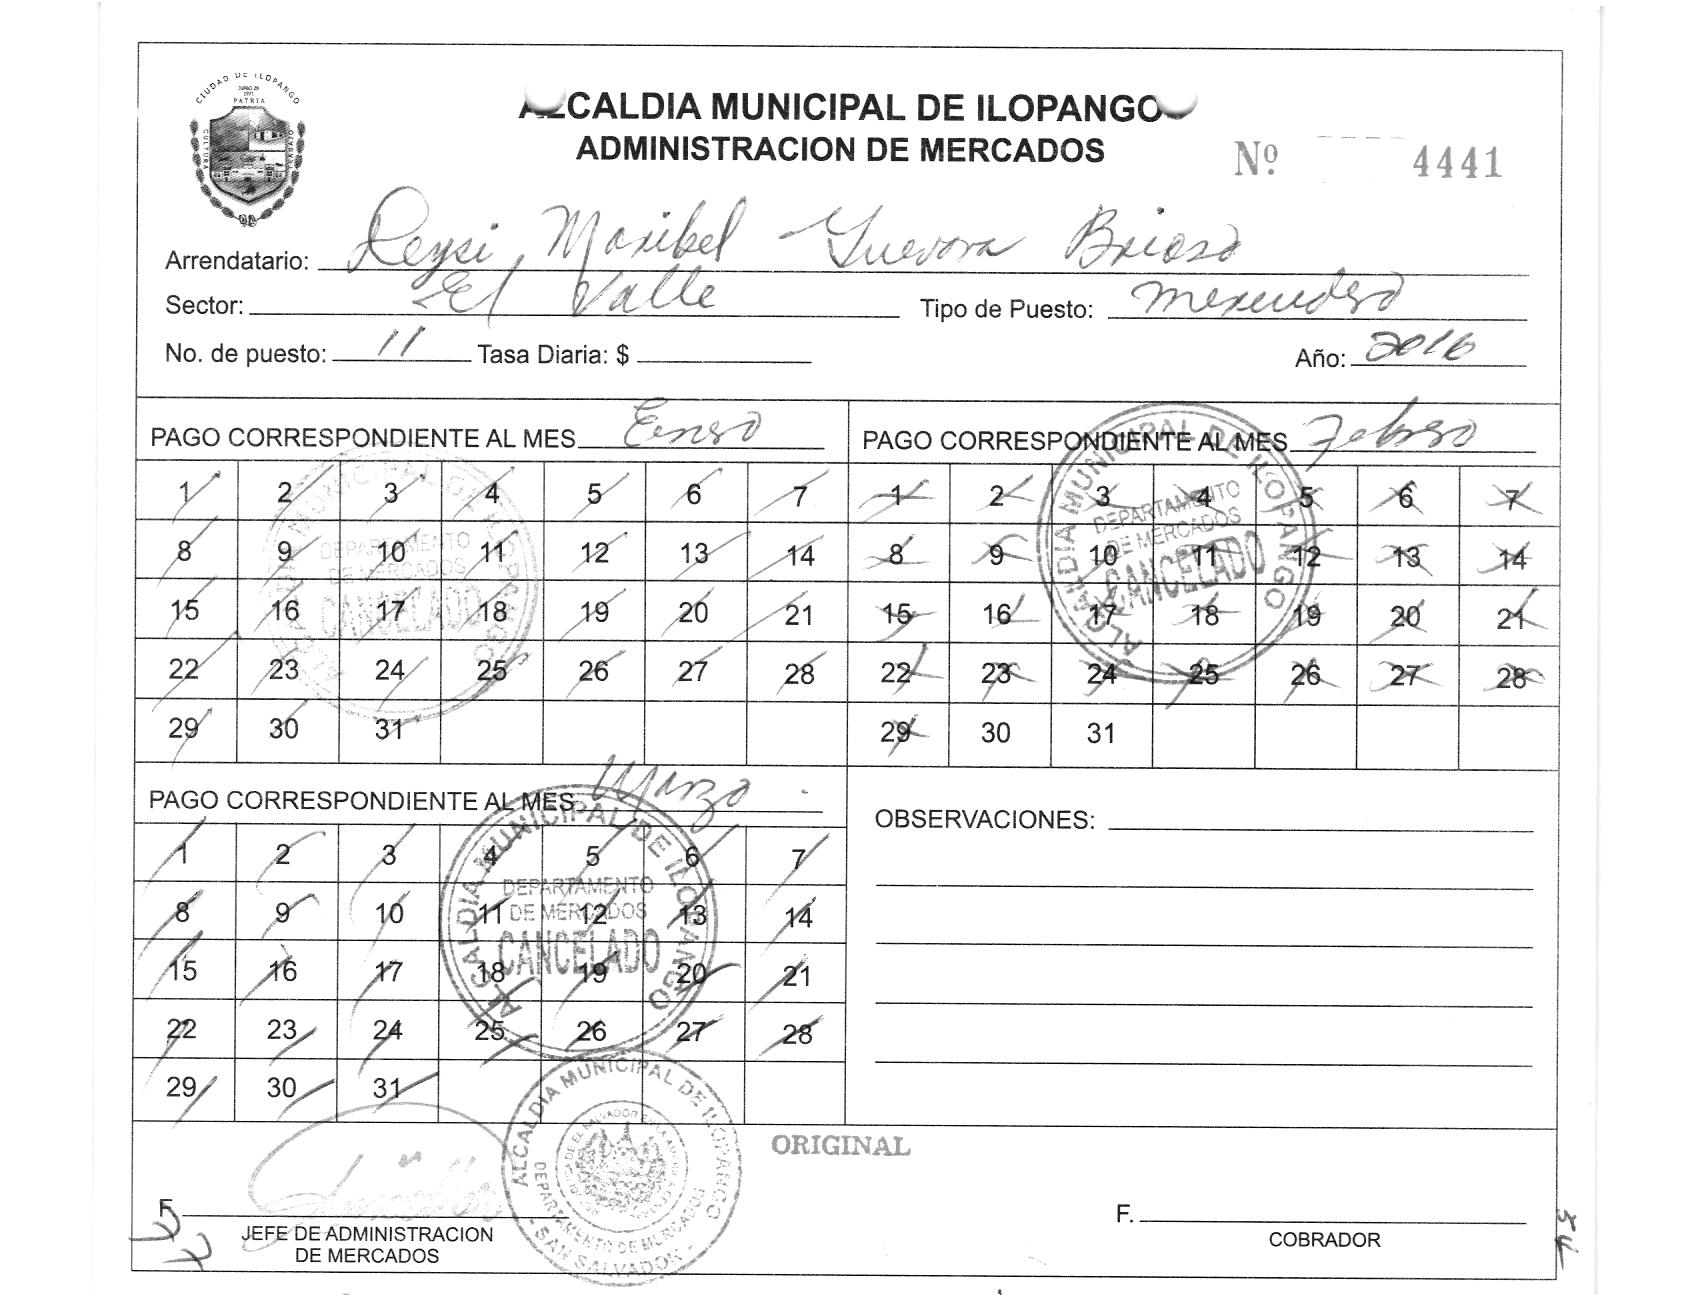 CIUDAD DE ILOPANGO
JUNIO 29
1971
PATRIA
CULTURA
ALCALDIA MUNICIPAL DE ILOPANGO
ADMINISTRACION DE MERCADOS
Nº 4441
Arrendatario: Reysi Maribel Guevara Brioso
Sector: El Valle Tipo de Puesto: Merendero
No. de puesto: 11 Tasa Diaria: $ Año: 2016
PAGO CORRESPONDIENTE AL MES Enero
1 2 3 4 5 6 7
8 9 10 11 12 13 14
15 16 17 18 19 20 21
22 23 24 25 26 27 28
29 30 31
DEPARTAMENTO
DE MERCADOS
CANCELADO
PAGO CORRESPONDIENTE AL MES Febrero
1 2 3 4 5 6 7
8 9 10 11 12 13 14
15 16 17 18 19 20 21
22 23 24 25 26 27 28
29 30 31
ALCALDIA MUNICIPAL DE ILOPANGO
DEPARTAMENTO
DE MERCADOS
CANCELADO
PAGO CORRESPONDIENTE AL MES Marzo
1 2 3 4 5 6 7
8 9 10 11 12 13 14
15 16 17 18 19 20 21
22 23 24 25 26 27 28
29 30 31
ALCALDIA MUNICIPAL DE ILOPANGO
DEPARTAMENTO
DE MERCADOS
CANCELADO
OBSERVACIONES:
ORIGINAL
ALCALDIA MUNICIPAL DE ILOPANGO
DEPARTAMENTO DE MERCADOS
- SAN SALVADOR -
F.
JEFE DE ADMINISTRACION
DE MERCADOS
F.
COBRADOR